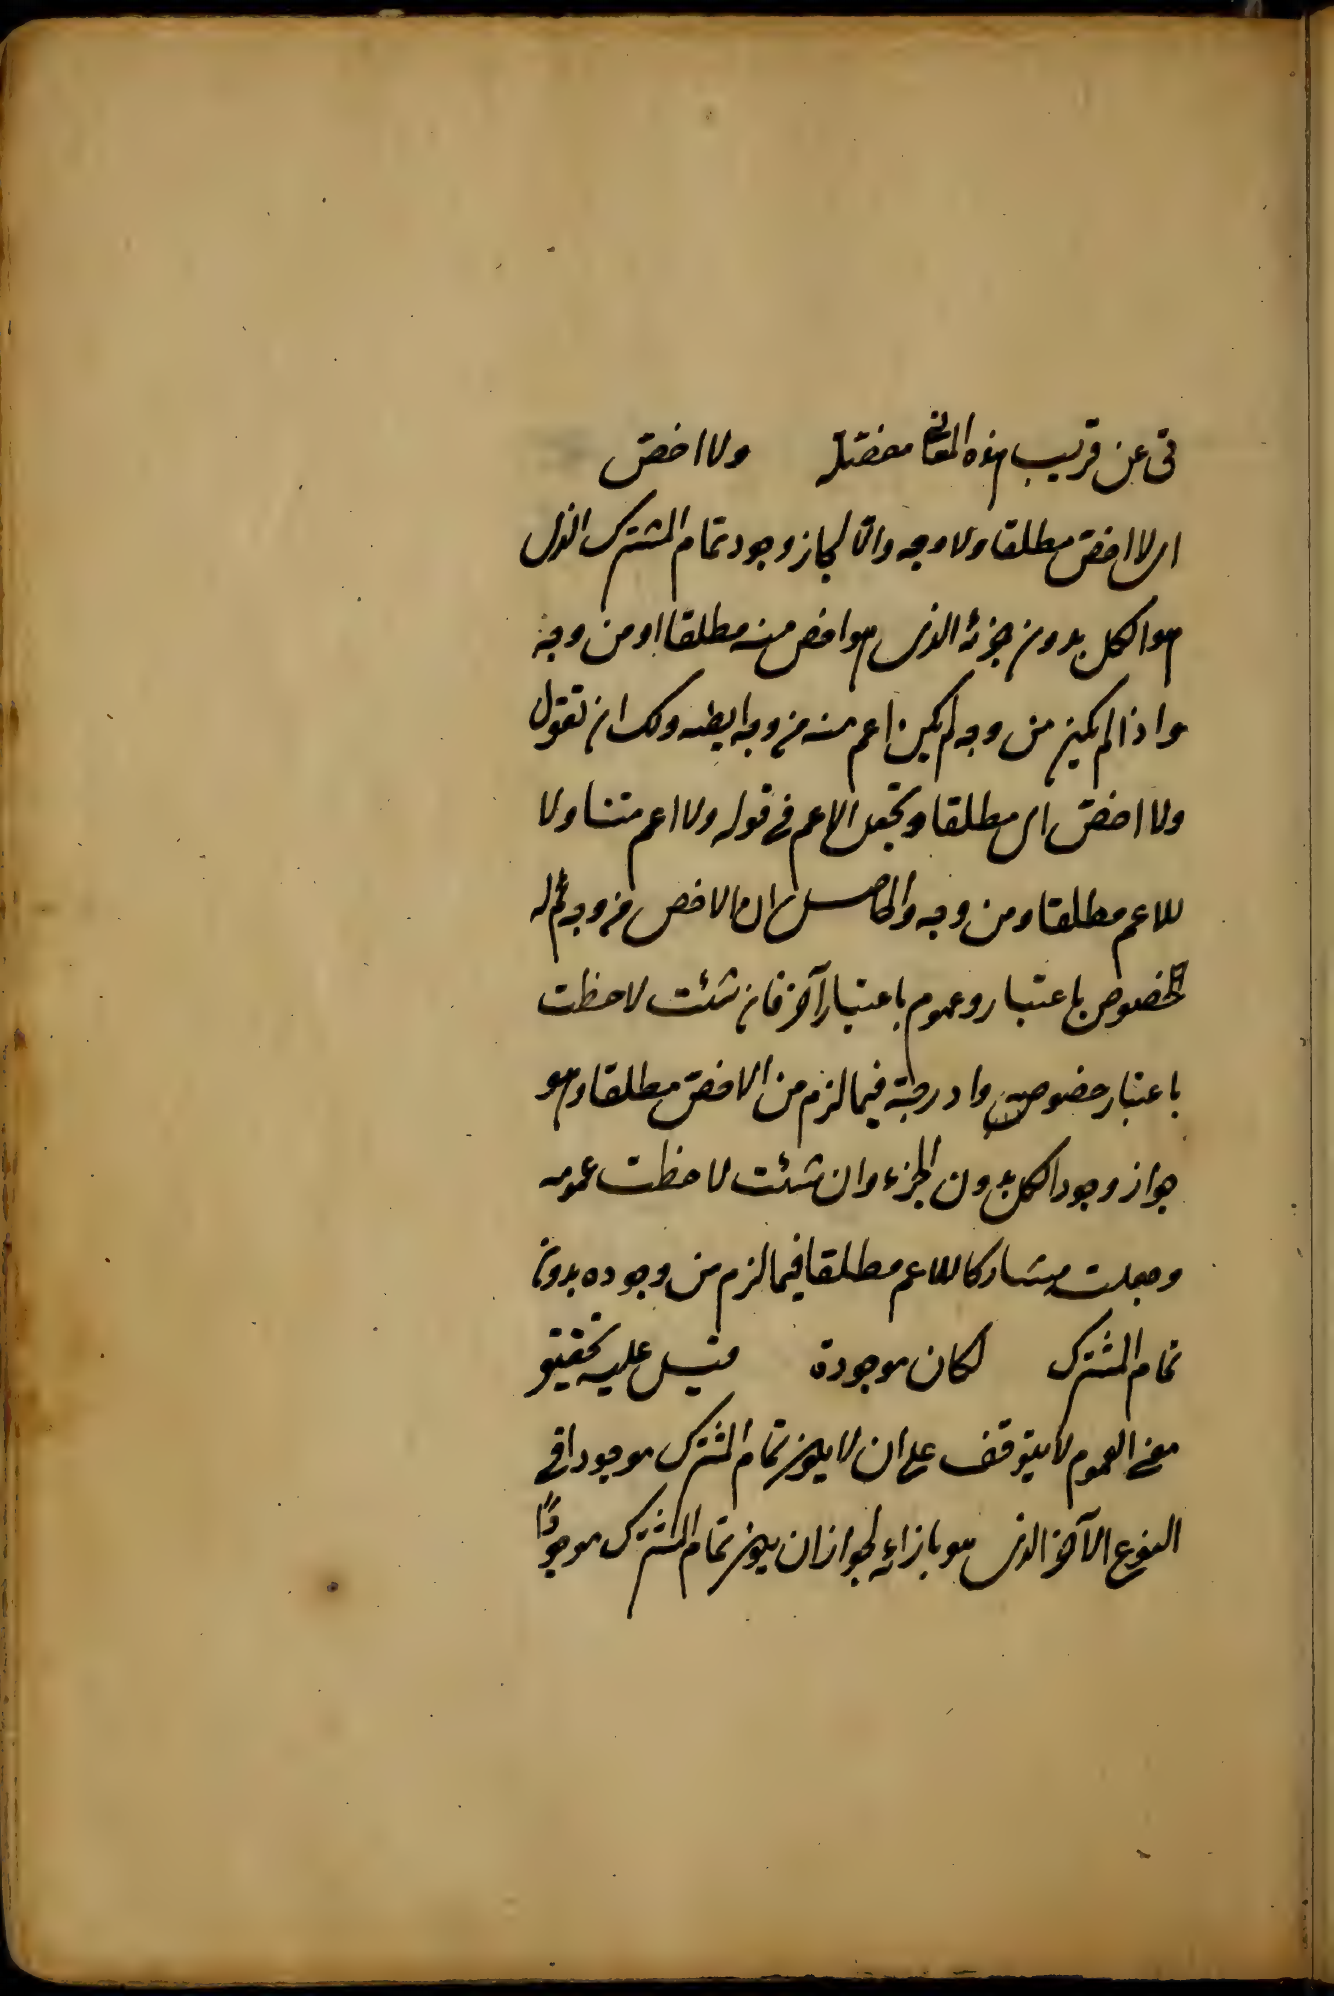 تى عن قريب هذه المعانى مفصلة ولا اخص
اى لا اخص مطلقا ولا وجه والا لجاز وجود تمام المشترك الذى
هو الكل بدون جزئه الذى هو اخص منه مطلقا او من وجه
واذا لم يكن من وجه لم يكن اعم منه من وجه ايضا ولك ان تقول
ولا اخص اى مطلقا وتجعل الاعم فى قوله ولا اعم متناولا
للاعم مطلقا ومن وجه والحاصل ان الاخص من وجه له
خصوص باعتبار وعموم باعتبار آخر فان شئت لاحظت
باعتبار خصوصه وادرجته فيما لزم من الاخص مطلقا وهو
جواز وجود الكل بدون الجزء وان شئت لاحظت عمومه
وجعلت مشاركا للاعم مطلقا فيما لزم من وجوده بدون
تمام المشترك لكان موجودة قيل عليه تحقيق
معنى العموم لا يتوقف على ان لا يكون تمام المشترك موجودا فى
النوع الآخر الذى هو بازائه لجواز ان يكون تمام المشترك موجودًا